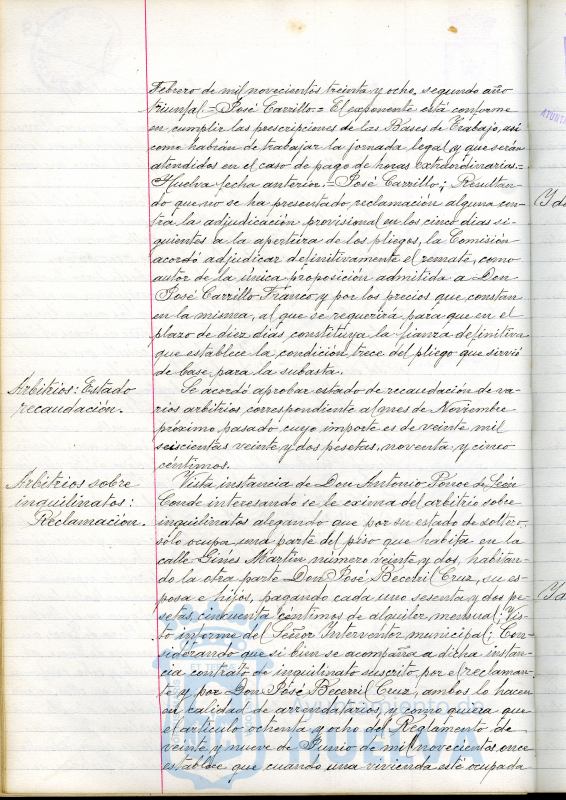 Febrero de mil novecientos treinta y ocho, segundo año
triunfal = José Carrillo.= El exponente está conforme
en cumplir las prescripciones de las Bases de Trabajo, así
como habrán de trabajar la jornada legal y que serán
atendidos en el caso de pago de horas extraordinarias.=
Huelva fecha anterior.= José Carrillo; Resultan-
do que no se ha presentado reclamación alguna con-
tra la adjudicación provisional en los cinco días si-
guientes a la apertura de los pliegos, la Comisión
acordó adjudicar definitivamente el remate, como
autor de la única proposición admitida a Don
José Carrillo Franco y por los precios que constan
en la misma, al que se requerirá para que en el
plazo de diez días constituya la fianza definitiva
que establece la condición trece del pliego que sirvió
de base para la subasta.
Arbitrios: Estado
recaudación.
Se acordó aprobar estado de recaudación de va-
rios arbitrios correspondiente al mes de Noviembre
próximo pasado cuyo importe es de veinte mil
seiscientas veinte y dos pesetas, noventa y cinco
céntimos.
Arbitrios sobre
inquilinatos:
Reclamación.
Vista instancia de Don Antonio Ponce de León
Conde interesando se le exima del arbitrio sobre
inquilinatos alegando que por su estado de soltero,
sólo ocupa una parte del piso que habita en la
calle Ginés Martín número veinte y dos, habitan-
do la otra parte Don José Becerril Cruz, su es-
posa e hijos, pagando cada uno sesenta y dos pe-
setas, cincuenta céntimos de alquiler mensual; Vis-
to informe del Señor Interventor municipal; Con-
siderando que si bien se acompaña a dicha instan-
cia contrato de inquilinato suscrito por el reclaman-
te y por Don José Becerril Cruz, ambos lo hacen
en calidad de arrendatarios, y como quiera que
el artículo ochenta y ocho del Reglamento de
veinte y nueve de Junio de mil novecientos once
establece que cuando una vivienda esté ocupada